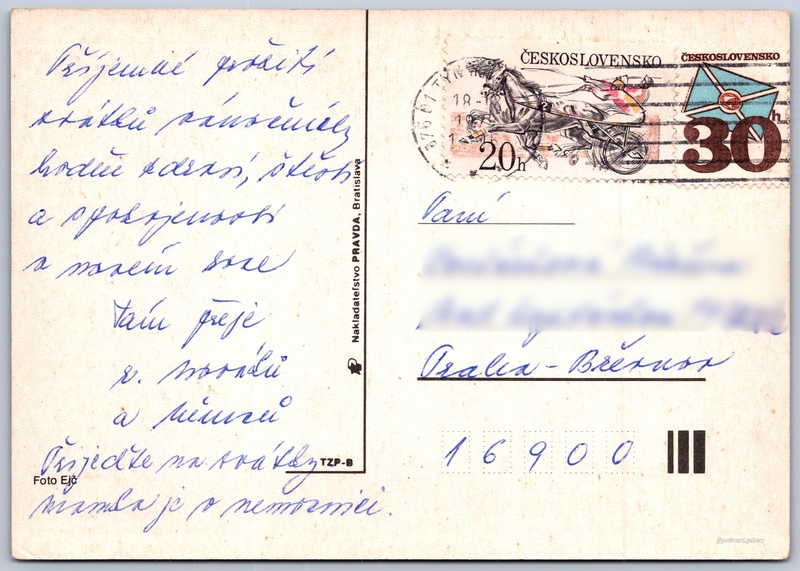 Příjemné prožití
svátků vánočních
hodně zdraví, štěstí
a spokojenosti
v novém roce
Vám přeje
r. Nováků
a Němců
Přijeďte na svátky
mamka je v nemocnici.
Foto Ejč
TZP-B
Nakladateľstvo PRAVDA, Bratislava
ČESKOSLOVENSKO
20h
ČESKOSLOVENSKO
30h
Paní
Praha - Břevnov
16900
@postcard.gallery